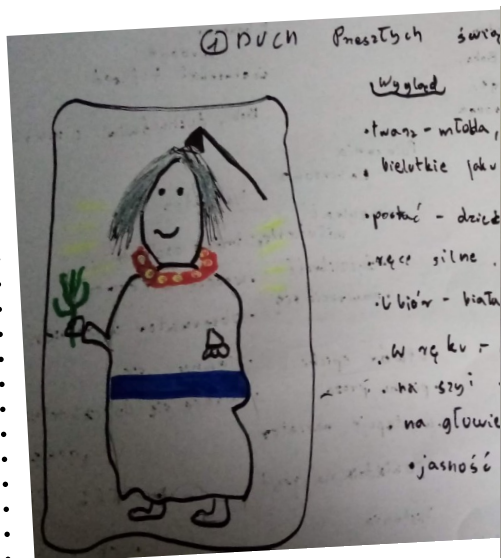 ① DUCH Przeszłych świą
Wygląd
• twarz - młoda,
• bielutkie jak
• postać - dziec
• ręce silne
• Ubiór - biała
• w ręku -
• na szyi
• na głowie
• jasność